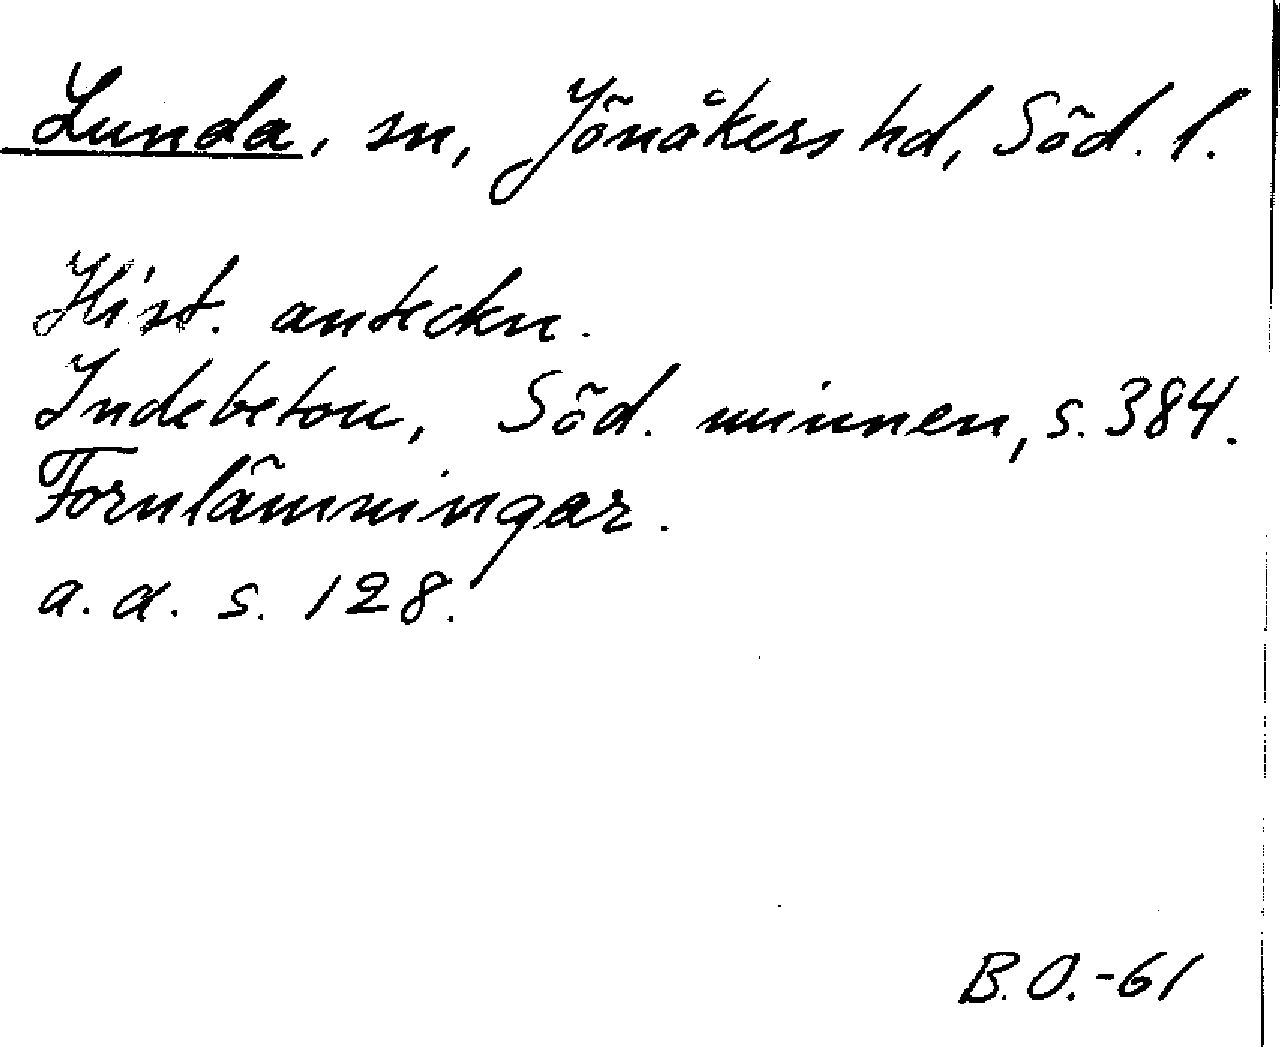 Lunda, sn, Jönåkers hd, Söd. l.
Hist. anteckn.
Indebetou, Söd. minnen, s. 384.
Fornlämningar.
a. a. s. 128.
B.O.-61